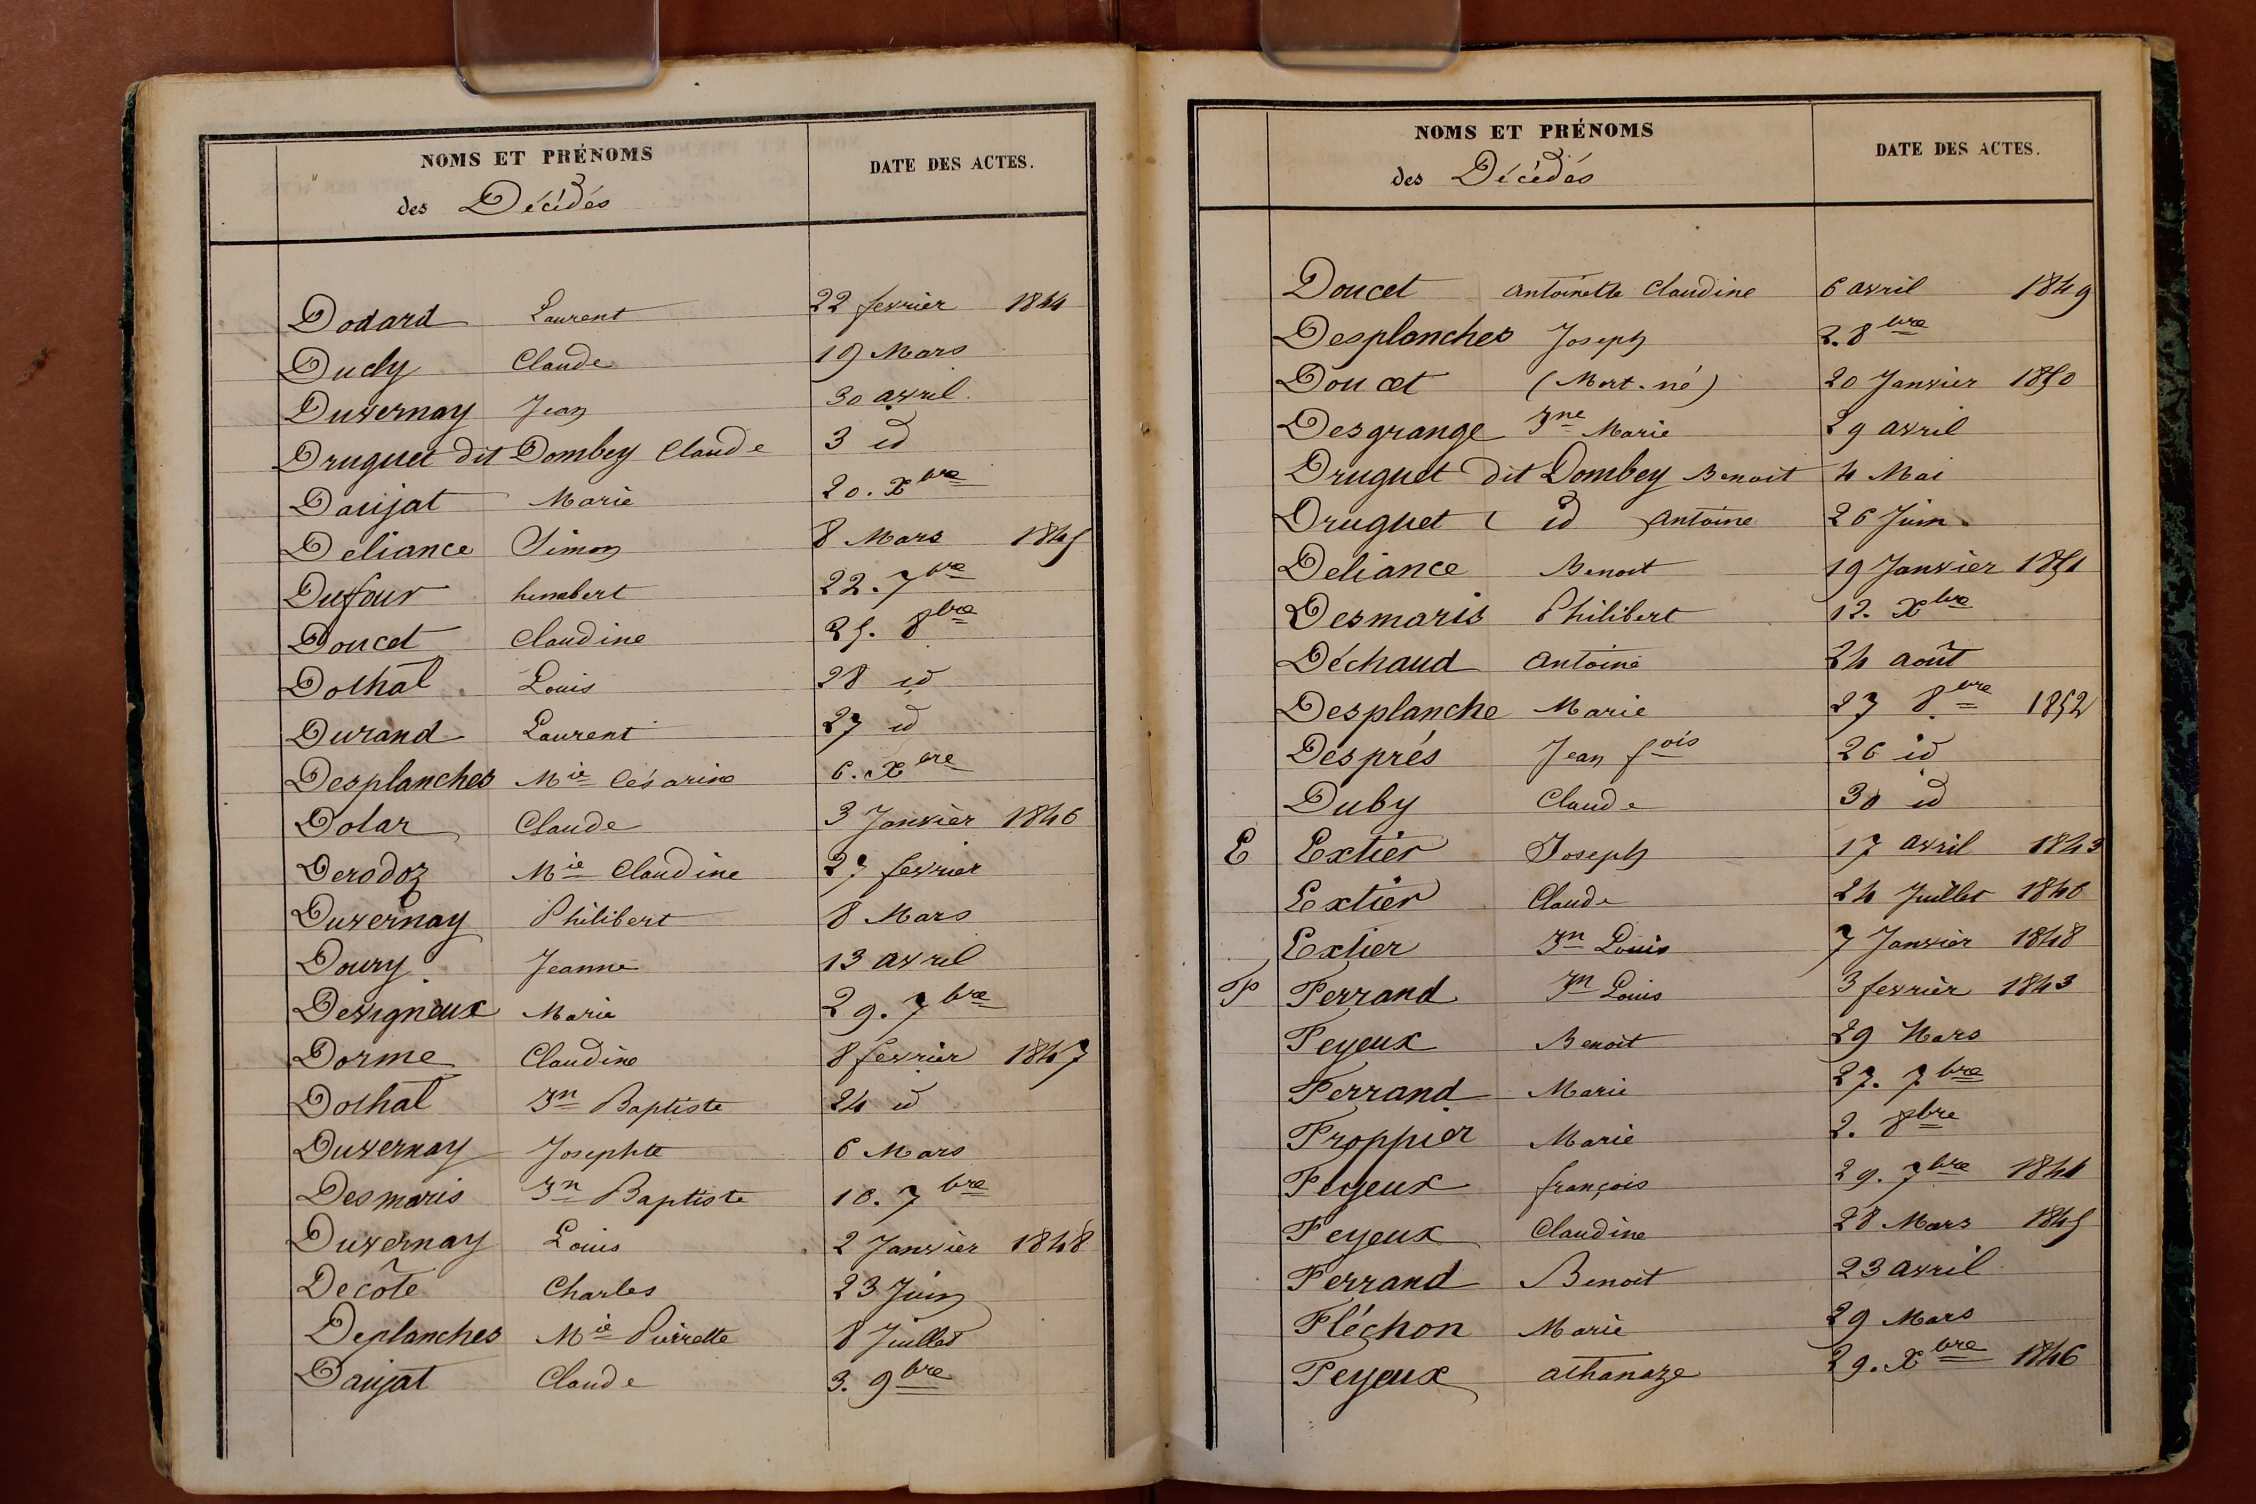 NOMS ET PRÉNOMS DATE DES ACTES.
des Décédés
Dodard Laurent 22 fevrier 1844
Ducly Claude 19 Mars
Duvernay Jean 30 avril
Druguet dit Dombey Claude 3 id
Daujat Marie 20. Xbre
Deliance Simon 8 Mars 1845
Dufour humbert 22. 7bre
Doucet Claudine 25. 8bre
Dothal Louis 28 id
Durand Laurent 27 id
Desplanches Mie Césarine 6. Xbre
Dolar Claude 3 Janvier 1846
Derodoz Mie Claudine 27 fevrier
Duvernay Philibert 8 Mars
Doury Jeanne 13 avril
Devigneux Marie 29. 7bre
Dorme Claudine 8 fevrier 1847
Dothal Jn Baptiste 24 id
Duvernay Josephte 6 Mars
Desmaris Jn Baptiste 10. 7bre
Duvernay Louis 2 Janvier 1848
Decôte Charles 23 Juin
Deplanches Mie Pierrette 8 Juillet
Daujat Claude 3. 9bre
NOMS ET PRÉNOMS DATE DES ACTES.
des Décédés
Doucet antoinette Claudine 6 avril 1849
Desplanches Joseph 2. 8bre
Doucet (Mort-né) 20 Janvier 1850
Desgrange Jne Marie 29 avril
Druguet dit Dombey Benoit 4 Mai
Druguet ( id ) antoine 26 Juin
Deliance Benoit 19 Janvier 1851
Desmaris Philibert 12. Xbre
Déchaud antoine 24 août
Desplanche Marie 27 8bre 1852
Després Jean fois 26 id
Duby Claude 30 id
E Extier Joseph 17 avril 1843
Extier Claude 24 Juillet 1846
Extier Jn Louis 7 Janvier 1848
F Ferrand Jn Louis 3 fevrier 1843
Feyeux Benoit 29 Mars
Ferrand Marie 27. 7bre
Froppier Marie 2. 8bre
Feyeux françois 29. 7bre 1844
Feyeux Claudine 28 Mars 1845
Ferrand Benoit 23 avril
Fléchon Marie 29 Mars
Feyeux athanaze 29. Xbre 1846